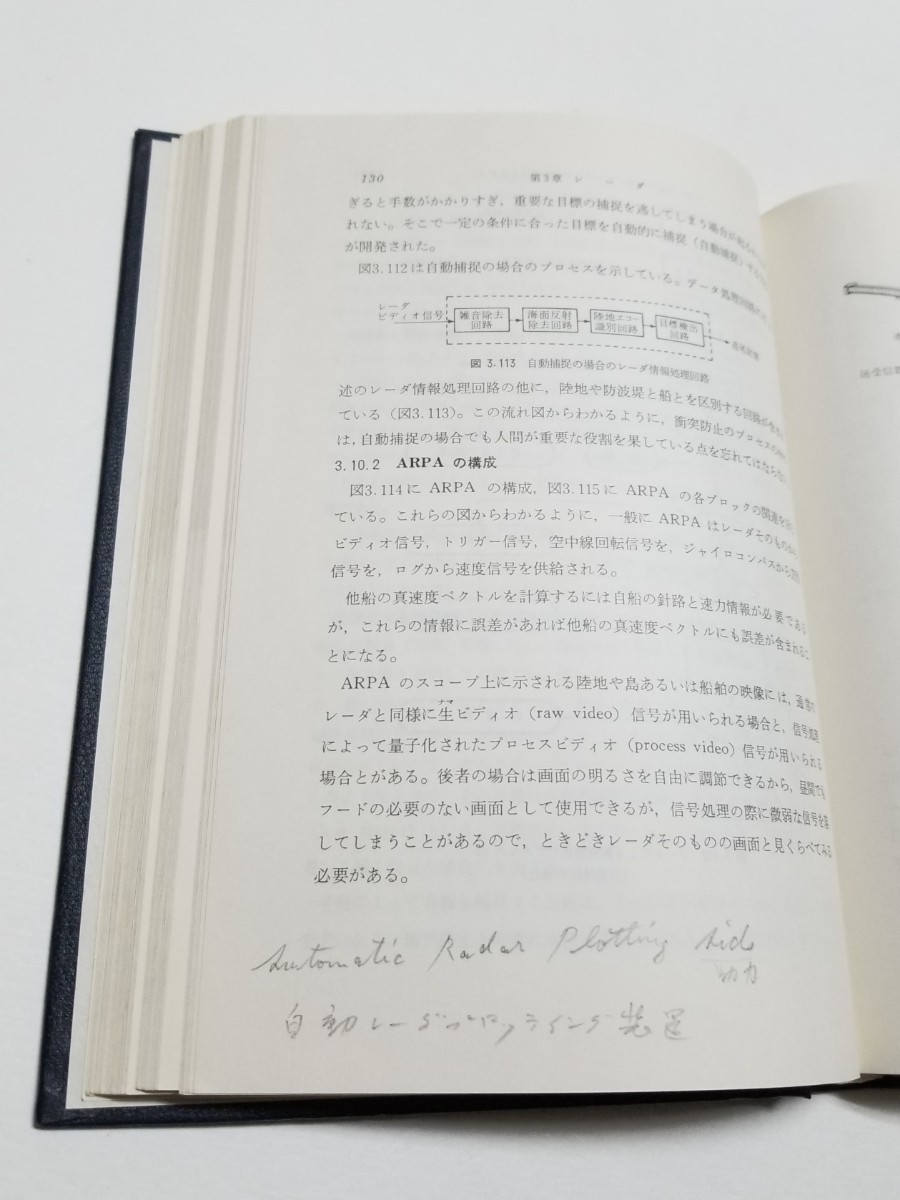 130
第3章 レーダ
ぎると手数がかかりすぎ，重要な目標の捕捉を逃してしまう場合が
れない。そこで一定の条件に合った目標を自動的に捕捉（自動捕捉）する
が開発された。
図3.112は自動捕捉の場合のプロセスを示している。データ処理回路
レーダ
ビディオ信号
雑音除去
回路
海面反射
除去回路
陸地エコー
識別回路
目標検出
回路
図 3.113 自動捕捉の場合のレーダ情報処理回路
述のレーダ情報処理回路の他に，陸地や防波堤と船とを区別する回路が
ている（図3.113）。この流れ図からわかるように，衝突防止のプロセスの
は，自動捕捉の場合でも人間が重要な役割を果している点を忘れてはならない
3.10.2 ARPA の構成
図3.114に ARPA の構成，図3.115に ARPA の各ブロックの関連を
ている。これらの図からわかるように，一般に ARPA はレーダそのものから
ビディオ信号，トリガー信号，空中線回転信号を，ジャイロコンパスから
信号を，ログから速度信号を供給される。
他船の真速度ベクトルを計算するには自船の針路と速力情報が必要である
が，これらの情報に誤差があれば他船の真速度ベクトルにも誤差が含まれるこ
とになる。
ARPA のスコープ上に示される陸地や島あるいは船舶の映像には，通常の
ナマ
レーダと同様に生ビディオ（raw video）信号が用いられる場合と，信号処理
によって量子化されたプロセスビディオ（process video）信号が用いられる
場合とがある。後者の場合は画面の明るさを自由に調節できるから，昼間でも
フードの必要のない画面として使用できるが，信号処理の際に微弱な信号を落
してしまうことがあるので，ときどきレーダそのものの画面と見くらべてみる
必要がある。
Automatic Radar Plotting Aid
助力
自動レーダプロッティング装置